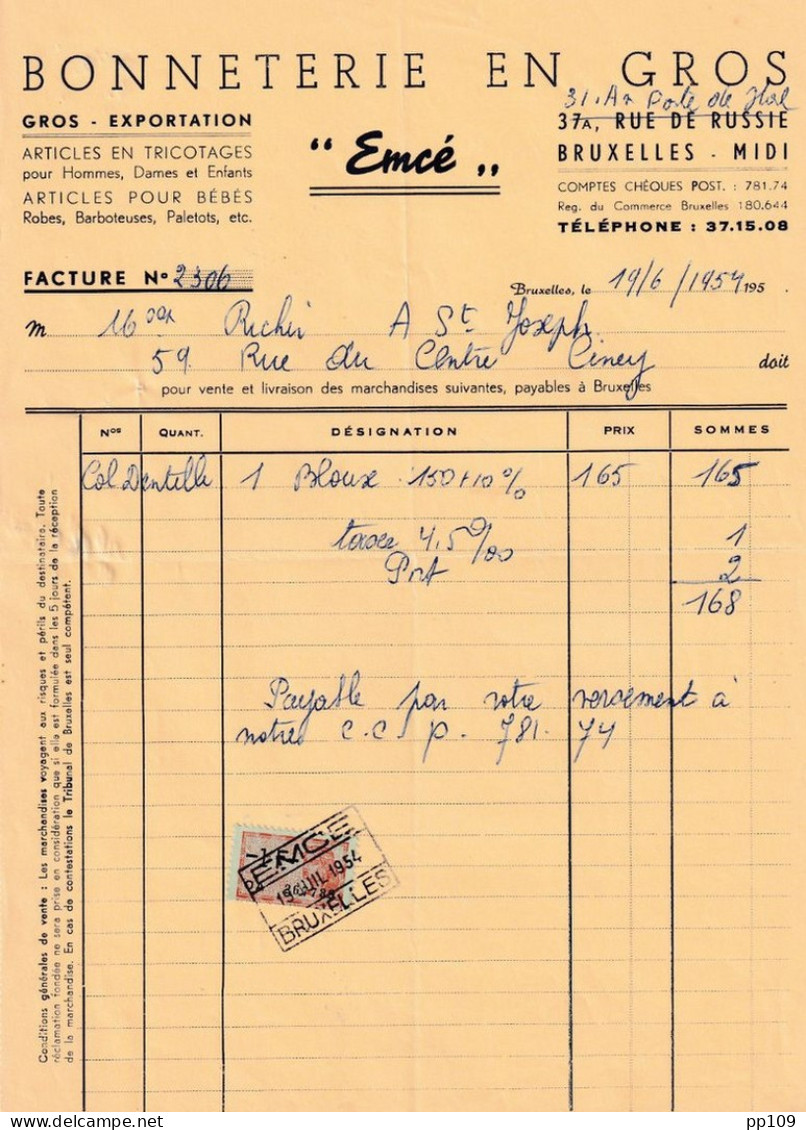 BONNETERIE EN GROS
GROS - EXPORTATION
ARTICLES EN TRICOTAGES
pour Hommes, Dames et Enfants
ARTICLES POUR BÉBÉS
Robes, Barboteuses, Paletots, etc.
" Emcé "
31. Av Porte de Hal
37A, RUE DE RUSSIE
BRUXELLES - MIDI
COMPTES CHÈQUES POST. : 781.74
Reg. du Commerce Bruxelles 180.644
TÉLÉPHONE : 37.15.08
FACTURE No 2306
Bruxelles, le 19/6/1954 195
m Richir A St Joseph
59 Rue du Centre Ciney doit
pour vente et livraison des marchandises suivantes, payables à Bruxelles
Nos QUANT. DÉSIGNATION PRIX SOMMES
Col Dentelle 1 Blouse 150+10% 165 165
taxe 4,5 0/00 1
Port 2
168
Payable par votre versement à
notre C.C.P. 781.74
EMCE
19 JUIL 1954
BRUXELLES
Conditions générales de vente : Les marchandises voyagent aux risques et périls du destinataire. Toute
réclamation fondée ne sera prise en considération que si elle est formulée dans les 5 jours de la réception
de la marchandise. En cas de contestations le Tribunal de Bruxelles est seul compétent.
pp109